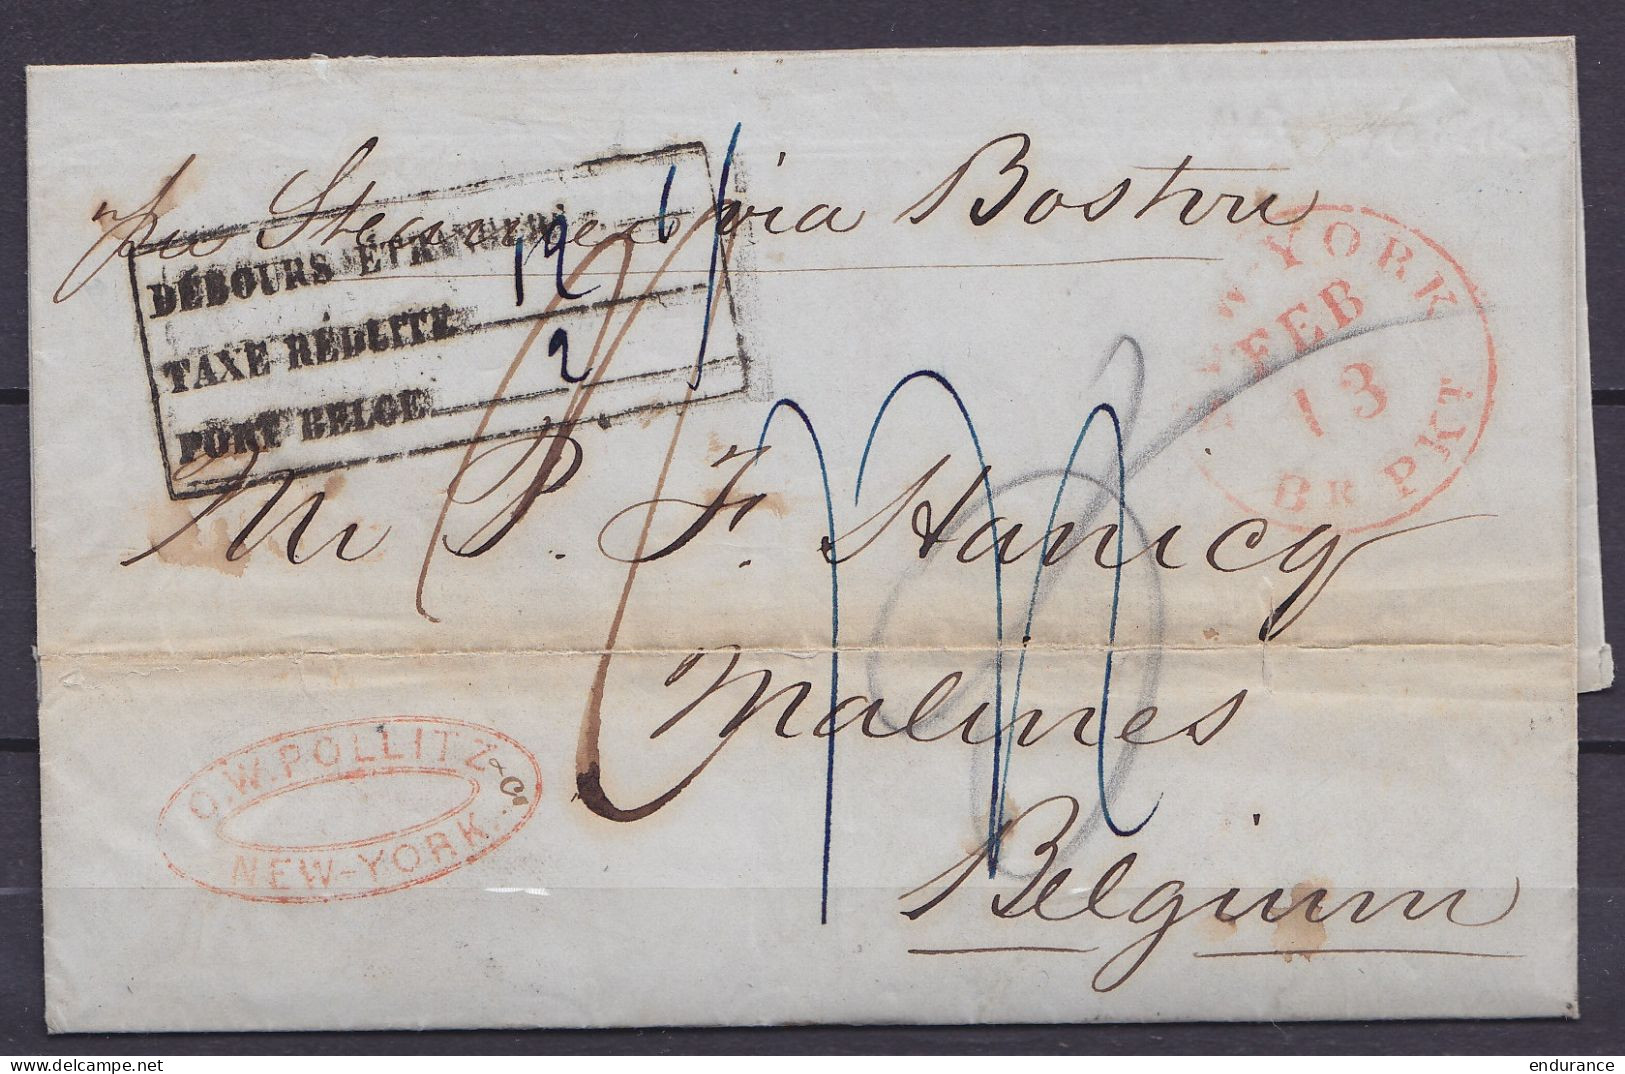 "per Steamer via Boston
DÉBOURS ÉTRANGERS 19
TAXE RÉDUITE 2
PORT BELGE
NEW-YORK
FEB
13
BR PKT
Mr P. F. Hanicq
Malines
Belgium
O.W. POLLITZ & Co
NEW-YORK.
endurance
delcampe.net